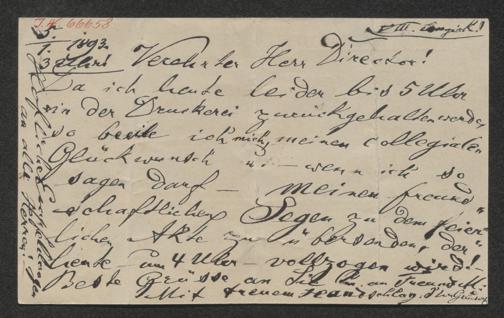 I.N. 66658
5.
1. 1893.
3 Uhr!
Verehrter Herr Director!
Da ich heute leider bis 5 Uhr
in der Druckerei zurückgehalten werde,
so beeile ich mich, meinen collegialen
Glückwunsch u. – wenn ich so
sagen darf – meinen freund-
schaftlichen Segen zu dem feier-
lichen Akte zu übersenden, der
heute um 4 Uhr – vollzogen wird! –
Beste Grüsse an
Mit treuem Handschlag. Ihr
Herzliche Empfehlungen
an alle Herren